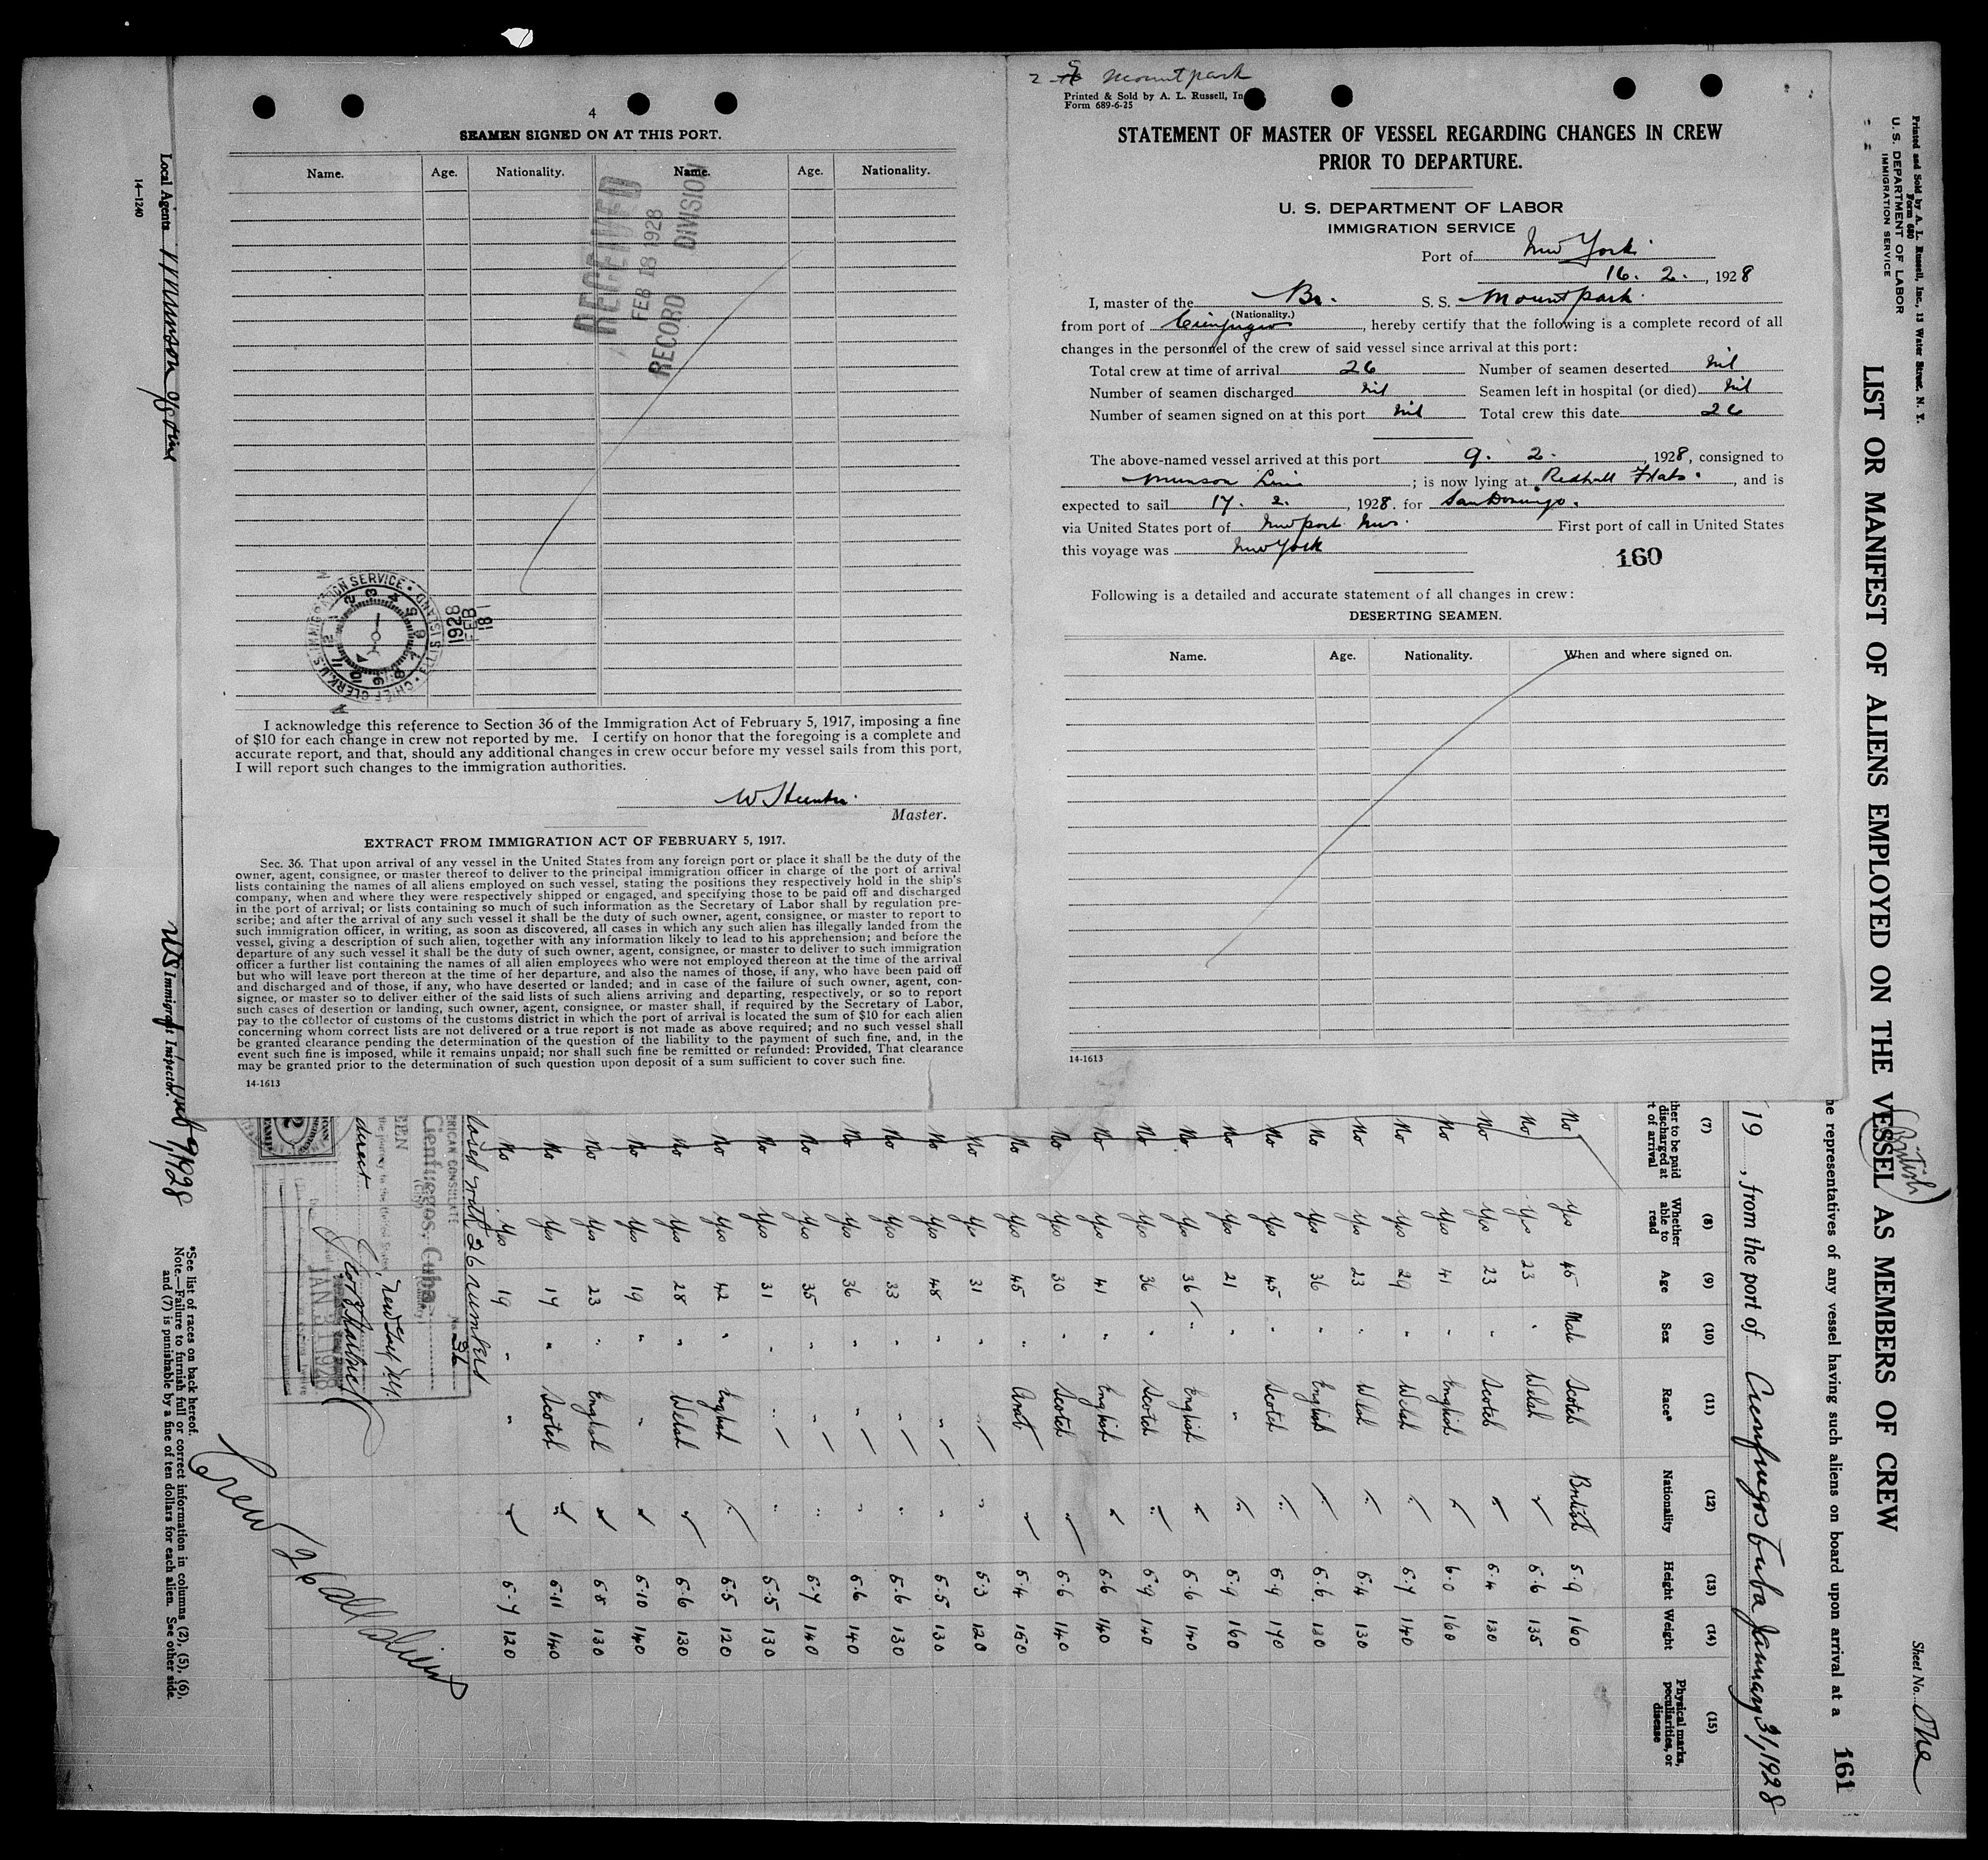 4
SEAMEN SIGNED ON AT THIS PORT.
Name. Age. Nationality. Name. Age. Nationality.
RECEIVED
FEB 18 1928
RECORD DIVISION
CHIEF CLERK, U.S. IMMIGRATION SERVICE • ELLIS ISLAND •
1928
FEB
18
I acknowledge this reference to Section 36 of the Immigration Act of February 5, 1917, imposing a fine
of $10 for each change in crew not reported by me. I certify on honor that the foregoing is a complete and
accurate report, and that, should any additional changes in crew occur before my vessel sails from this port,
I will report such changes to the immigration authorities.
W Hunter
Master.
EXTRACT FROM IMMIGRATION ACT OF FEBRUARY 5, 1917.
Sec. 36. That upon arrival of any vessel in the United States from any foreign port or place it shall be the duty of the
owner, agent, consignee, or master thereof to deliver to the principal immigration officer in charge of the port of arrival
lists containing the names of all aliens employed on such vessel, stating the positions they respectively hold in the ship's
company, when and where they were respectively shipped or engaged, and specifying those to be paid off and discharged
in the port of arrival; or lists containing so much of such information as the Secretary of Labor shall by regulation pre-
scribe; and after the arrival of any such vessel it shall be the duty of such owner, agent, consignee, or master to report to
such immigration officer, in writing, as soon as discovered, all cases in which any such alien has illegally landed from the
vessel, giving a description of such alien, together with any information likely to lead to his apprehension; and before the
departure of any such vessel it shall be the duty of such owner, agent, consignee, or master to deliver to such immigration
officer a further list containing the names of all alien employees who were not employed thereon at the time of the arrival
but who will leave port thereon at the time of her departure, and also the names of those, if any, who have been paid off
and discharged and of those, if any, who have deserted or landed; and in case of the failure of such owner, agent, con-
signee, or master so to deliver either of the said lists of such aliens arriving and departing, respectively, or so to report
such cases of desertion or landing, such owner, agent, consignee, or master shall, if required by the Secretary of Labor,
pay to the collector of customs of the customs district in which the port of arrival is located the sum of $10 for each alien
concerning whom correct lists are not delivered or a true report is not made as above required; and no such vessel shall
be granted clearance pending the determination of the question of the liability to the payment of such fine, and, in the
event such fine is imposed, while it remains unpaid; nor shall such fine be remitted or refunded: Provided, That clearance
may be granted prior to the determination of such question upon deposit of a sum sufficient to cover such fine.
14-1613
Mountpark
Printed & Sold by A. L. Russell, In
Form 689-6-25
STATEMENT OF MASTER OF VESSEL REGARDING CHANGES IN CREW
PRIOR TO DEPARTURE.
U. S. DEPARTMENT OF LABOR
IMMIGRATION SERVICE
Port of New York.
16. 2. , 1928
I, master of the Br. S. S. Mountpark.
(Nationality.)
from port of Cienfuegos, hereby certify that the following is a complete record of all
changes in the personnel of the crew of said vessel since arrival at this port:
Total crew at time of arrival 26 Number of seamen deserted nil
Number of seamen discharged nil Seamen left in hospital (or died) nil
Number of seamen signed on at this port nil Total crew this date 26
The above-named vessel arrived at this port 9. 2. , 1928, consigned to
Munson Line ; is now lying at Redhall Flats. , and is
expected to sail 17. 2. , 1928. for San Domingo.
via United States port of Newport News. First port of call in United States
this voyage was New York
160
Following is a detailed and accurate statement of all changes in crew:
DESERTING SEAMEN.
Name. Age. Nationality. When and where signed on.
14-1613
Printed and Sold by A. L. Russell, Inc., 13 Water Street, N. Y.
Form 680
U. S. DEPARTMENT OF LABOR
IMMIGRATION SERVICE
Sheet No. One
LIST OR MANIFEST OF ALIENS EMPLOYED ON THE VESSEL AS MEMBERS OF CREW
(British)
he representatives of any vessel having such aliens on board upon arrival at a 161
19 , from the port of Cienfuegos Cuba January 31, 1928
(7) (8) (9) (10) (11) (12) (13) (14) (15)
ther to be paid discharged at t of arrival Whether able to read Age Sex Race* Nationality Height Weight Physical marks, peculiarities, or disease
No Yes 45 Male Scotch British 5.9 160
No Yes 23 " Welsh " 5.6 135
No Yes 23 " Scotch " 5.4 130
No Yes 41 " English " 6.0 160
No Yes 29 " Welsh " 5.7 140
No Yes 23 " Welsh " 5.4 130
No Yes 36 " English " 5.6 130
No Yes 45 " Scotch " 5.9 170
No Yes 21 " " " 5.9 160
No Yes 36 " English " 5.6 140
No Yes 36 " Scotch " 5.9 140
No Yes 41 " English " 5.6 140
No Yes 30 " Scotch " 5.6 140
No Yes 45 " Arab " 5.4 150
No Yes 31 " " " 5.3 120
No Yes 48 " " " 5.5 130
No Yes 33 " " " 5.6 130
No Yes 36 " " " 5.6 140
No Yes 35 " " " 5.7 140
No Yes 31 " " " 5.5 130
No Yes 42 " English " 5.5 120
No Yes 28 " Welsh " 5.6 130
No Yes 19 " " " 5.10 140
No Yes 23 " English " 5.8 130
No Yes 17 " Scotch " 5.11 140
No Yes 19 " " " 5.7 120
losed with 26 numbers
ERICAN CONSULATE
Cienfuegos, Cuba
No. 36
EEN
the journey to the United States
direct, New York N.Y.
JAN 31 1928
Crew 26 all aliens
*See list of races on back hereof.
Note.—Failure to furnish full or correct information in columns (2), (5), (6),
and (7) is punishable by a fine of ten dollars for each alien. See other side.
Local Agents Munson S/S Line
Immigrant Inspector.
9/1928
14—1240